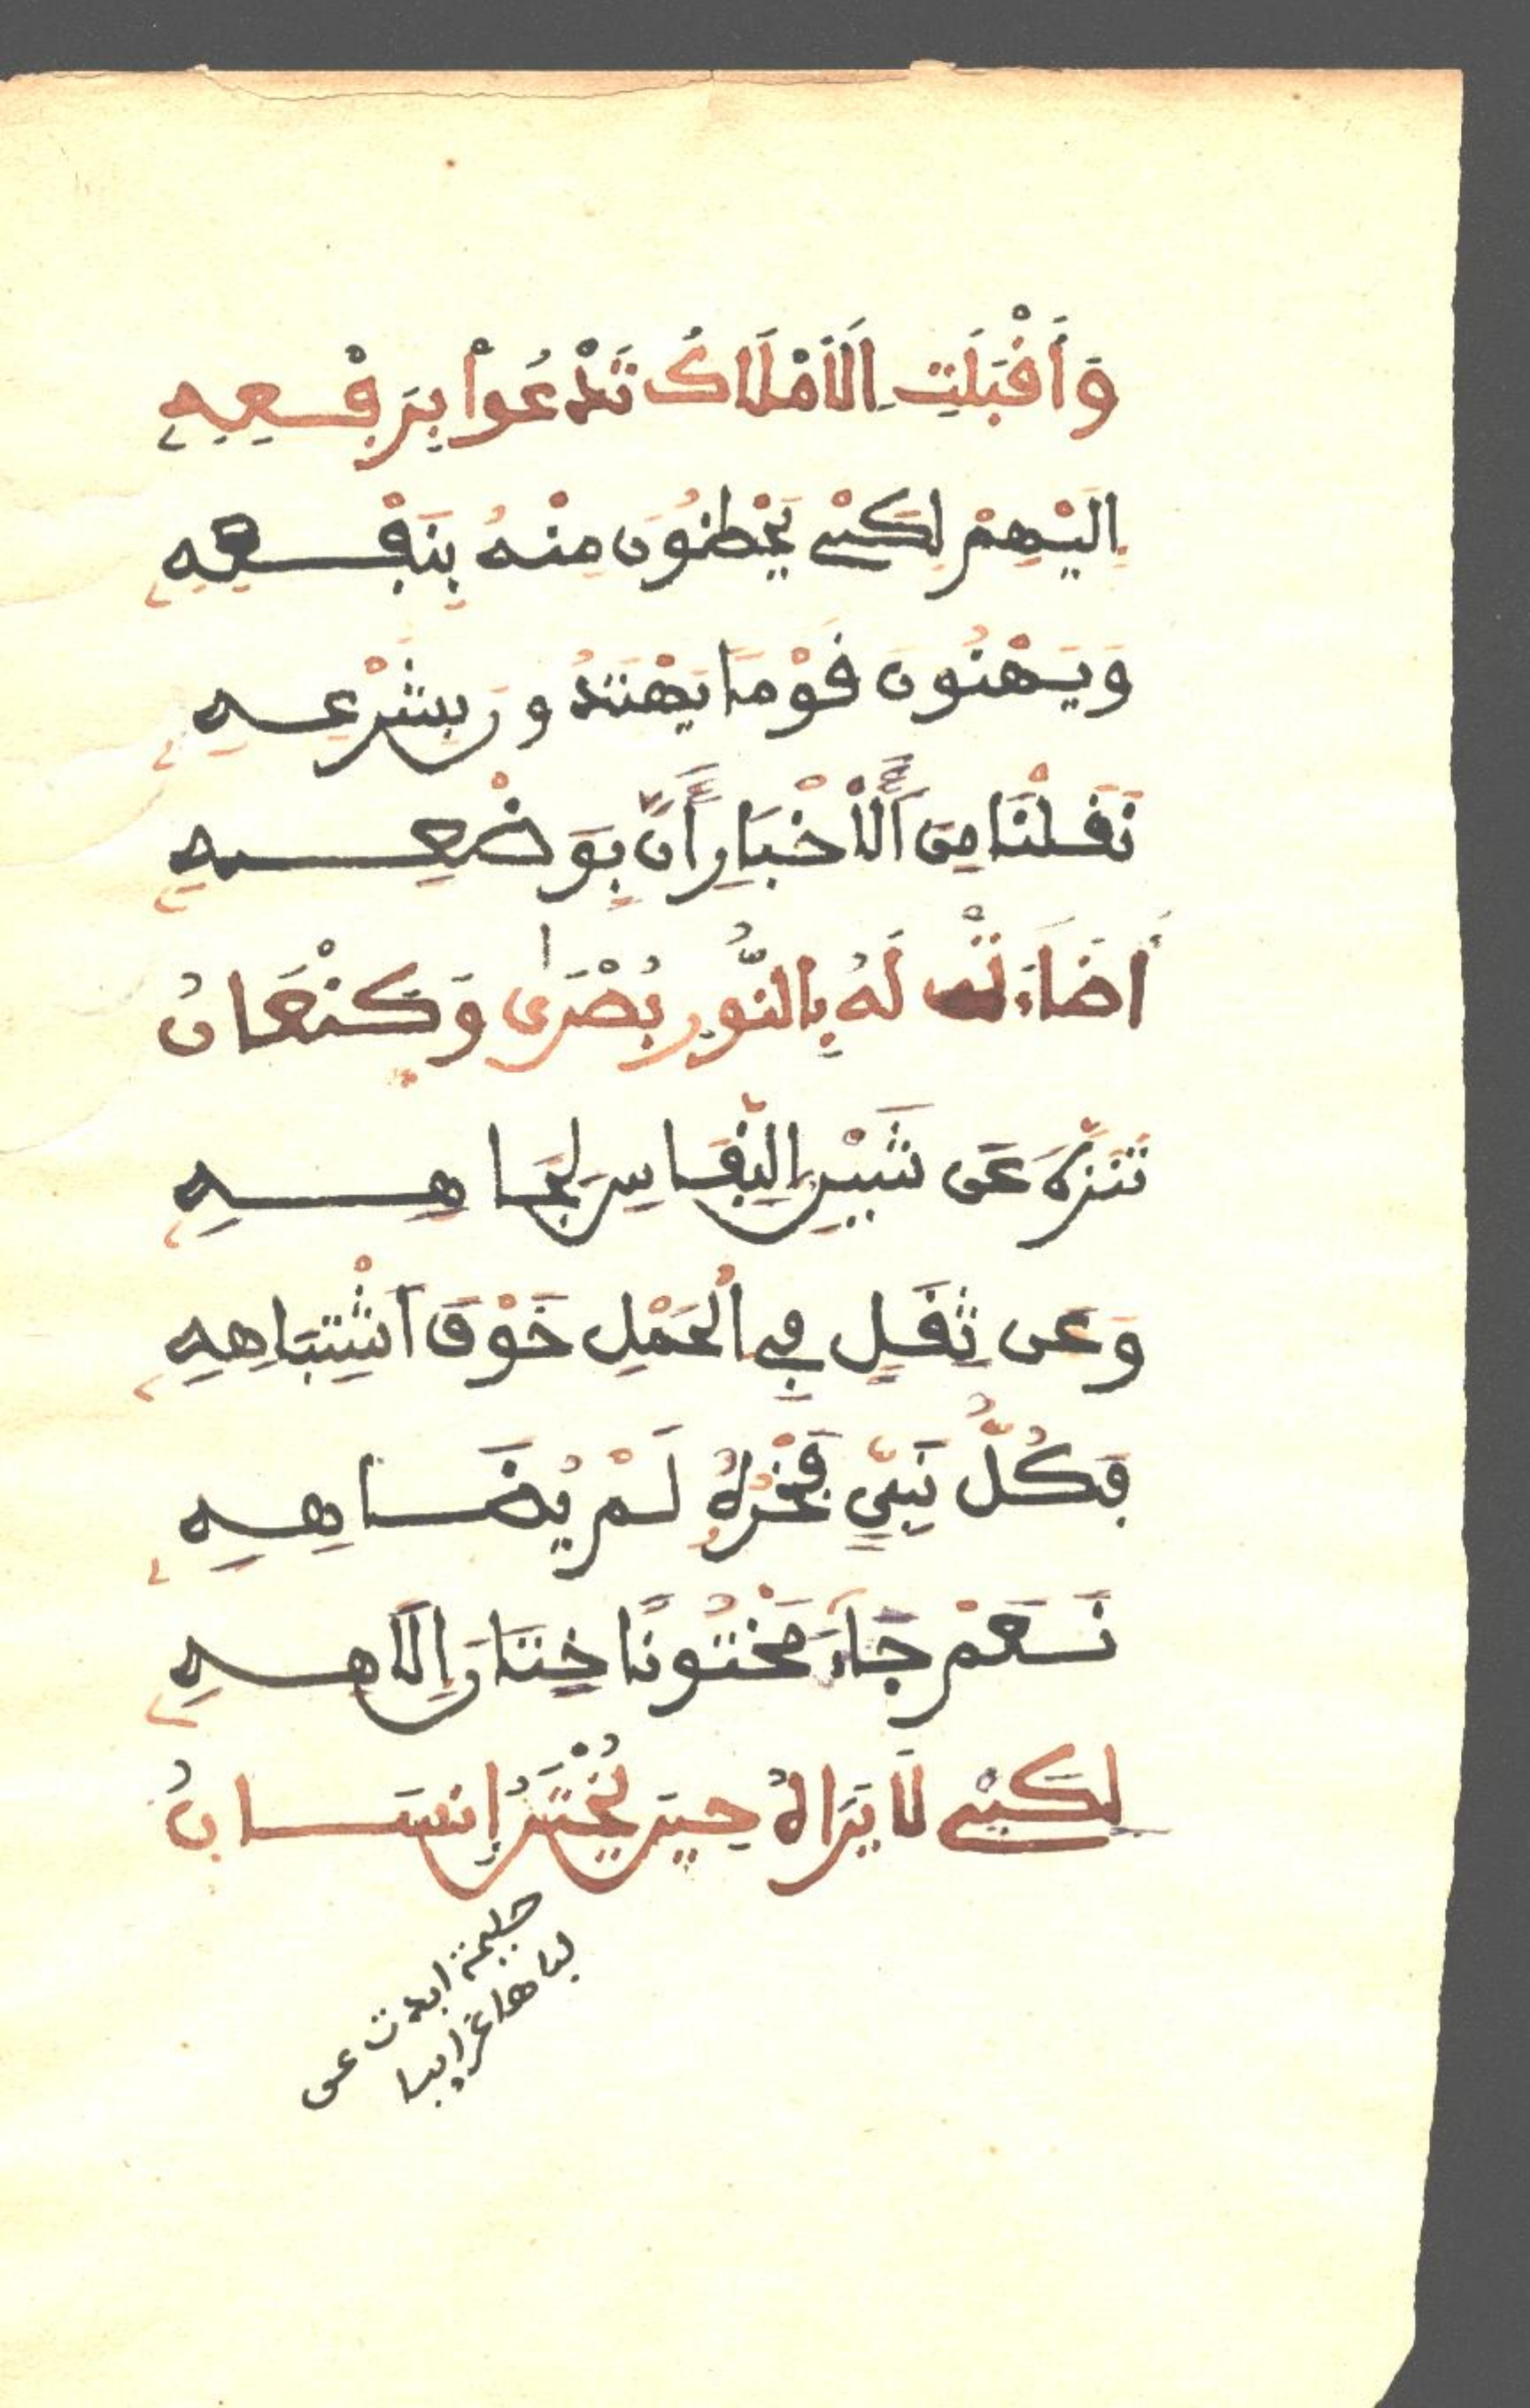 وَأَقْبَلَتِ الَامْلَاكُ تَدْعُواْ بِرَفْعِهِ
اِلَيْهِمْ لِكَيْ يَحْظَوْنَ مِنْهُ بِنَفْعِهِ
وَيَهْنُونَ قَوْمًا يَهْتَدُونَ بِشَرْعِهِ
نَقَلْنَا مِنَ اَلَاخْبَارِ أَنَّ بِوَضْعِهِ
أَضَاءَتْ لَهُ بِالنُّورِ بُصْرَى وَكَنْعَانُ
تَنَزَّهَ عَن شَيْنِ النِّفَاسِ لِجَاهِهِ
وَعَن ثِقَلٍ فِي الْحَمْلِ خَوْفَ اَشْتِبَاهِهِ
فَكُلُّ نَبِيٍّ فَخْرُهُ لَمْ يُضَاهِهِ
نَعَمْ جَاءَ مَخْتُونًا خِتَانَ إِلَاهِهِ
لِكَيْ لَا يَرَاهُ حِينَ يُخْتَنُ إِنسَانُ
حليمة ابدت عن
لبنها غرايبا